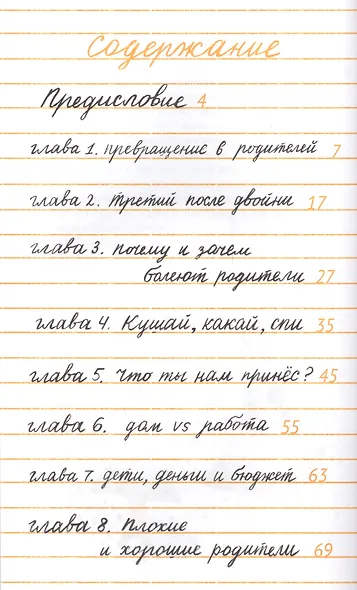 Содержание
Предисловие 4
глава 1. превращение в родителей 7
глава 2. третий после двойни 17
глава 3. почему и зачем
болеют родители 27
глава 4. Кушай, какай, спи 35
глава 5. Что ты нам принёс? 45
глава 6. дом vs работа 55
глава 7. дети, деньги и бюджет 63
глава 8. Плохие
и хорошие родители 69